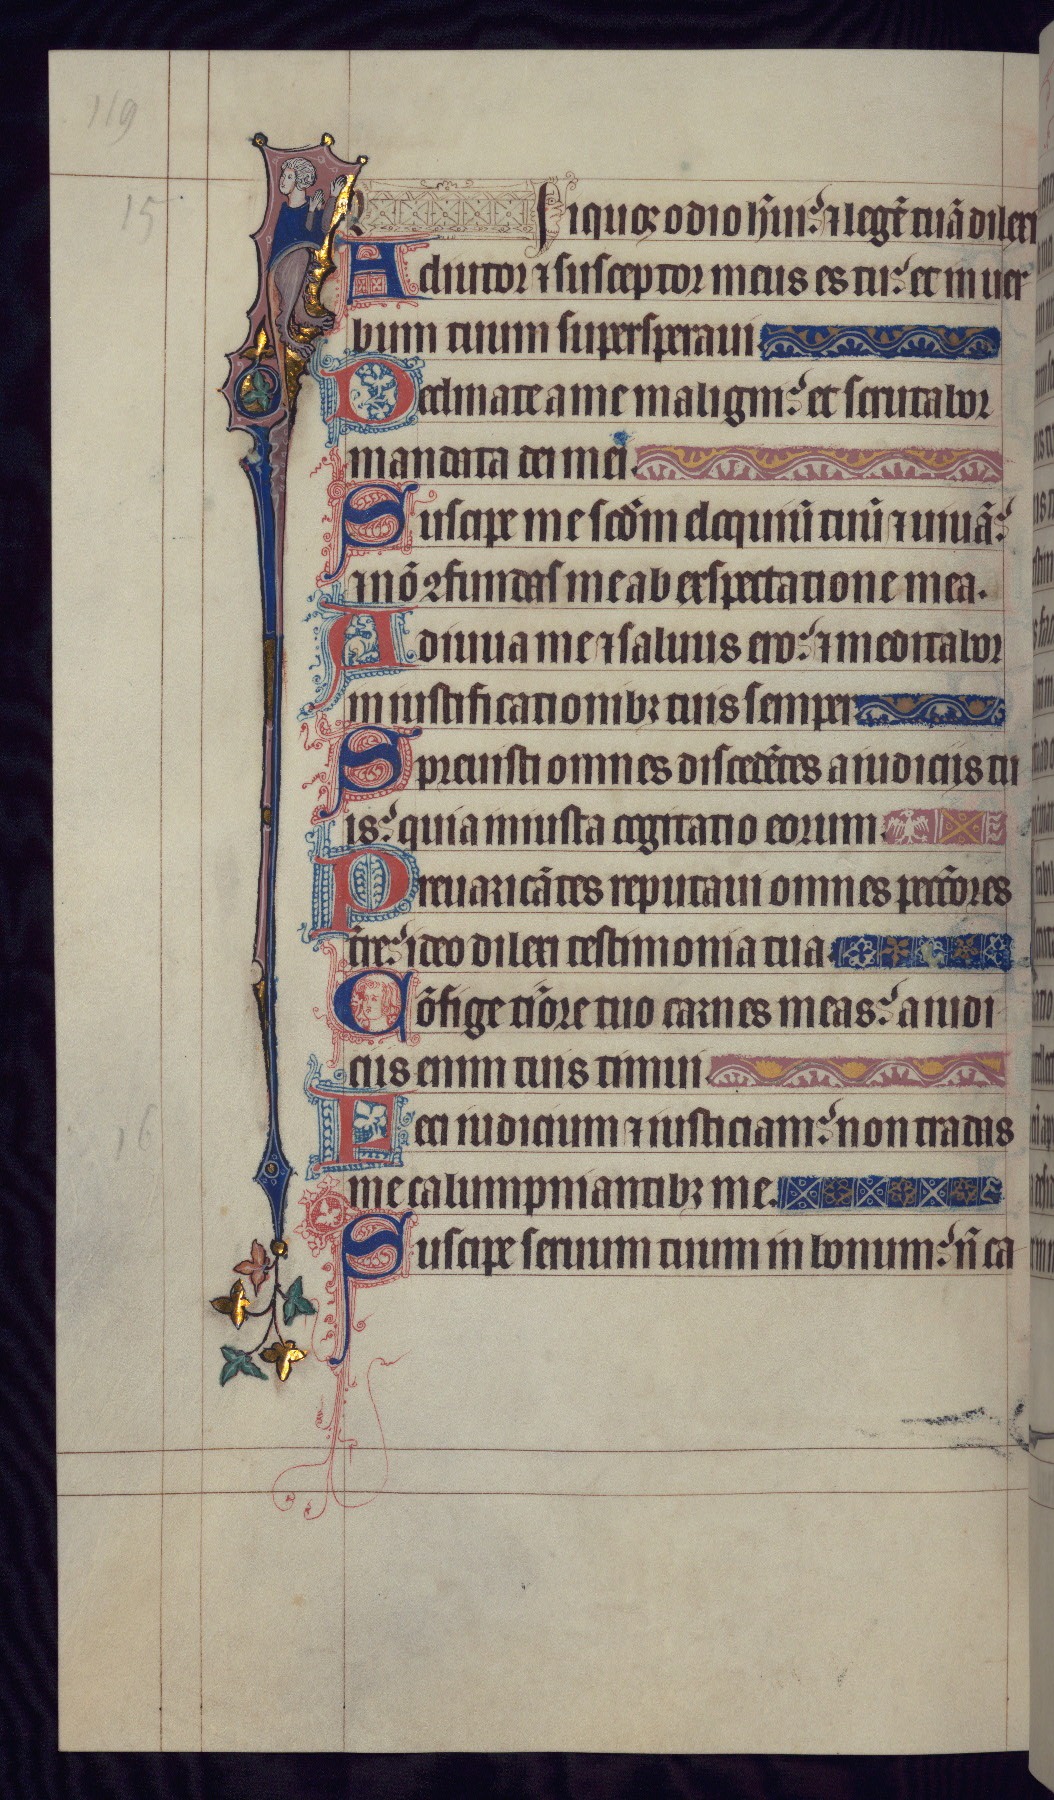 119
15
Iniquos odio hui: ⁊ legē tuā dilexi
Adiutor ⁊ susceptor meus es tu: et in uer
bum tuum supersperaui.
Declinate a me maligni: et scrutabor
mandata dei mei.
Suscipe me scdm eloquiū tuū ⁊ uiuā:
⁊ nō ꝯfundas me ab exspectatione mea.
Adiuua me ⁊ saluus ero: ⁊ meditabor
in iustificationibꝫ tuis semper
Spreuisti omnes discedētes a iudicijs tu
is: quia iniusta cogitatio eorum.
Preuaricātes reputaui omnes pccōres
tre: ideo dilexi testimonia tua.
Cōfige tiōre tuo carnes meas: a iudi
ciis enim tuis timui.
16
Feci iudicium ⁊ iusticiam: non tradas
me calumpniantibꝫ me.
Suscipe seruum tuum in bonum: ñ ca